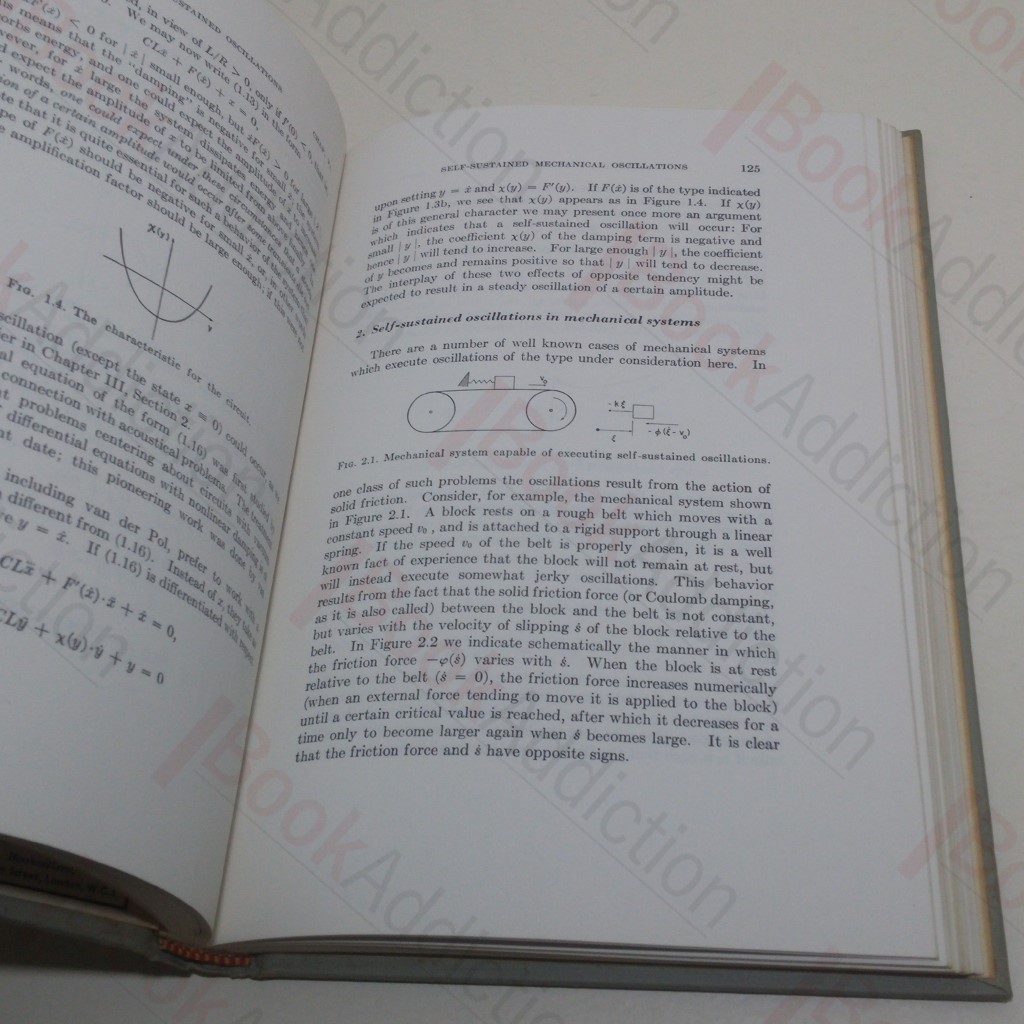 SUSTAINED OSCILLATIONS
in view of L/R > 0, only if f'(0) < 0.
We may now write (1.13) in the form
CLẍ + F(ẋ) + x = 0,
F(ẋ) < 0 for |ẋ| small enough, but ẋF(ẋ) > 0 for
means that the "damping" is negative for small ẋ
energy, and one could expect the amplitude of
for ẋ large the system dissipates energy and
expect the amplitude of x to be limited from above.
words, one could expect under these circumstances that
of a certain amplitude would occur after some time.
that it is quite essential for such a behavior of the system
of F(ẋ) should be negative for small ẋ, or, in other
amplification factor should be large enough; if this
χ(y)
y
FIG. 1.4. The characteristic for the circuit.
oscillation (except the state x = 0) could occur
in Chapter III, Section 2.
equation of the form (1.16) was first studied
connection with acoustical problems. The
problems centering about circuits with vacuum
differential equations with nonlinear damping
date; this pioneering work was done by
including van der Pol, prefer to work with
different from (1.16). Instead of x, they
y = ẋ. If (1.16) is differentiated with respect
CLx⃛ + F'(ẋ)·ẍ + ẋ = 0,
CLÿ + χ(y)·ẏ + y = 0
SELF-SUSTAINED MECHANICAL OSCILLATIONS 125
upon setting y = ẋ and χ(y) = F'(y). If F(ẋ) is of the type indicated
in Figure 1.3b, we see that χ(y) appears as in Figure 1.4. If χ(y)
is of this general character we may present once more an argument
which indicates that a self-sustained oscillation will occur: For
small | y |, the coefficient χ(y) of the damping term is negative and
hence | y | will tend to increase. For large enough | y |, the coefficient
of y becomes and remains positive so that | y | will tend to decrease.
The interplay of these two effects of opposite tendency might be
expected to result in a steady oscillation of a certain amplitude.
2. Self-sustained oscillations in mechanical systems
There are a number of well known cases of mechanical systems
which execute oscillations of the type under consideration here. In
v₀
-kξ
ξ
-φ(ξ̇-v₀)
FIG. 2.1. Mechanical system capable of executing self-sustained oscillations.
one class of such problems the oscillations result from the action of
solid friction. Consider, for example, the mechanical system shown
in Figure 2.1. A block rests on a rough belt which moves with a
constant speed v₀, and is attached to a rigid support through a linear
spring. If the speed v₀ of the belt is properly chosen, it is a well
known fact of experience that the block will not remain at rest, but
will instead execute somewhat jerky oscillations. This behavior
results from the fact that the solid friction force (or Coulomb damping,
as it is also called) between the block and the belt is not constant,
but varies with the velocity of slipping ṡ of the block relative to the
belt. In Figure 2.2 we indicate schematically the manner in which
the friction force −φ(ṡ) varies with ṡ. When the block is at rest
relative to the belt (ṡ = 0), the friction force increases numerically
(when an external force tending to move it is applied to the block)
until a certain critical value is reached, after which it decreases for a
time only to become larger again when ṡ becomes large. It is clear
that the friction force and ṡ have opposite signs.
BookAddiction